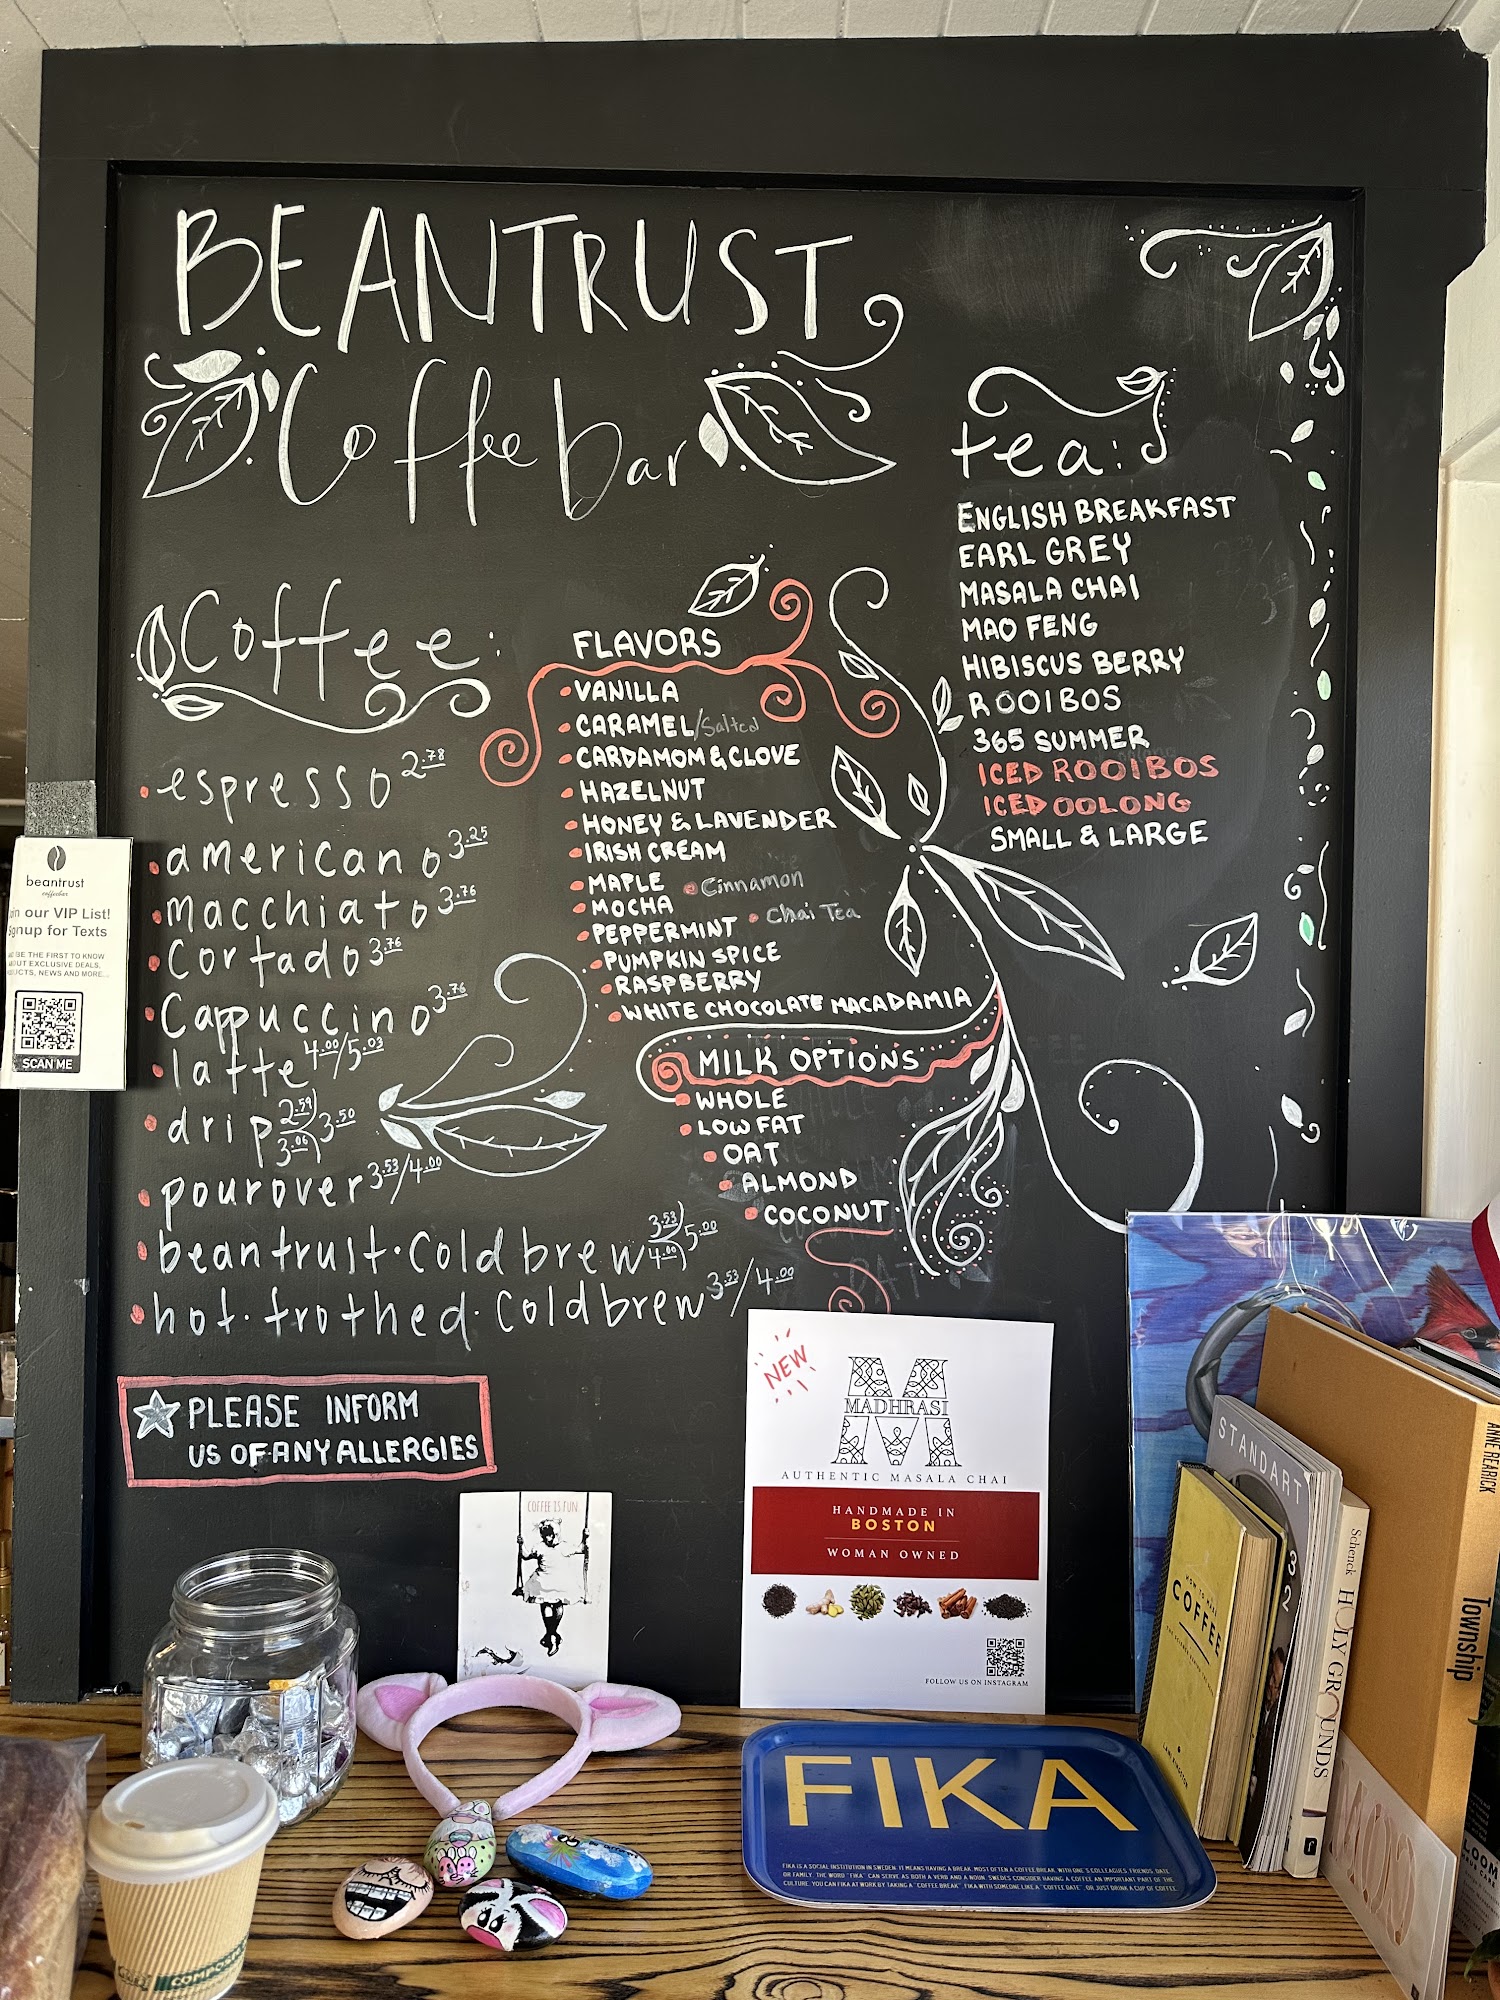 BEANTRUST
Coffee bar
tea:
ENGLISH BREAKFAST
EARL GREY
MASALA CHAI
MAO FENG
HIBISCUS BERRY
ROOIBOS
365 SUMMER
ICED ROOIBOS
ICED OOLONG
SMALL & LARGE
Coffee:
espresso 2.78
americano 3.25
macchiato 3.76
Cortado 3.76
Cappuccino 3.76
latte 4.00/5.03
drip 2.59 3.06 3.50
pourover 3.53/4.00
beantrust.Cold brew 3.53 4.00 5.00
hot.frothed.Cold brew 3.53/4.00
FLAVORS
VANILLA
CARAMEL/Salted
CARDAMOM & CLOVE
HAZELNUT
HONEY & LAVENDER
IRISH CREAM
MAPLE
Cinnamon
MOCHA
Chai Tea
PEPPERMINT
PUMPKIN SPICE
RASPBERRY
WHITE CHOCOLATE MACADAMIA
MILK OPTIONS
WHOLE
LOW FAT
OAT
ALMOND
COCONUT
PLEASE INFORM
US OF ANY ALLERGIES
beantrust
coffeebar
our VIP List!
up for Texts
BE THE FIRST TO KNOW
EXCLUSIVE DEALS,
NEWS AND MORE...
SCAN ME
COFFEE IS FUN
NEW
M
MADHRASI
AUTHENTIC MASALA CHAI
HANDMADE IN
BOSTON
WOMAN OWNED
FOLLOW US ON INSTAGRAM
FIKA
FIKA IS A SOCIAL INSTITUTION IN SWEDEN. IT MEANS HAVING A BREAK, MOST OFTEN A COFFEE BREAK, WITH ONE'S COLLEAGUES, FRIENDS, DATE
OR FAMILY. THE WORD "FIKA" CAN SERVE AS BOTH A VERB AND A NOUN. SWEDES CONSIDER HAVING A COFFEE AN IMPORTANT PART OF THE
CULTURE. YOU CAN FIKA AT WORK BY TAKING A "COFFEE BREAK", FIKA WITH SOMEONE LIKE A "COFFEE DATE", OR JUST DRINK A CUP OF COFFEE.
HOW TO MAKE
COFFEE
STANDART
32
Schenck HOLY GROUNDS
ANNE REARICK
Township